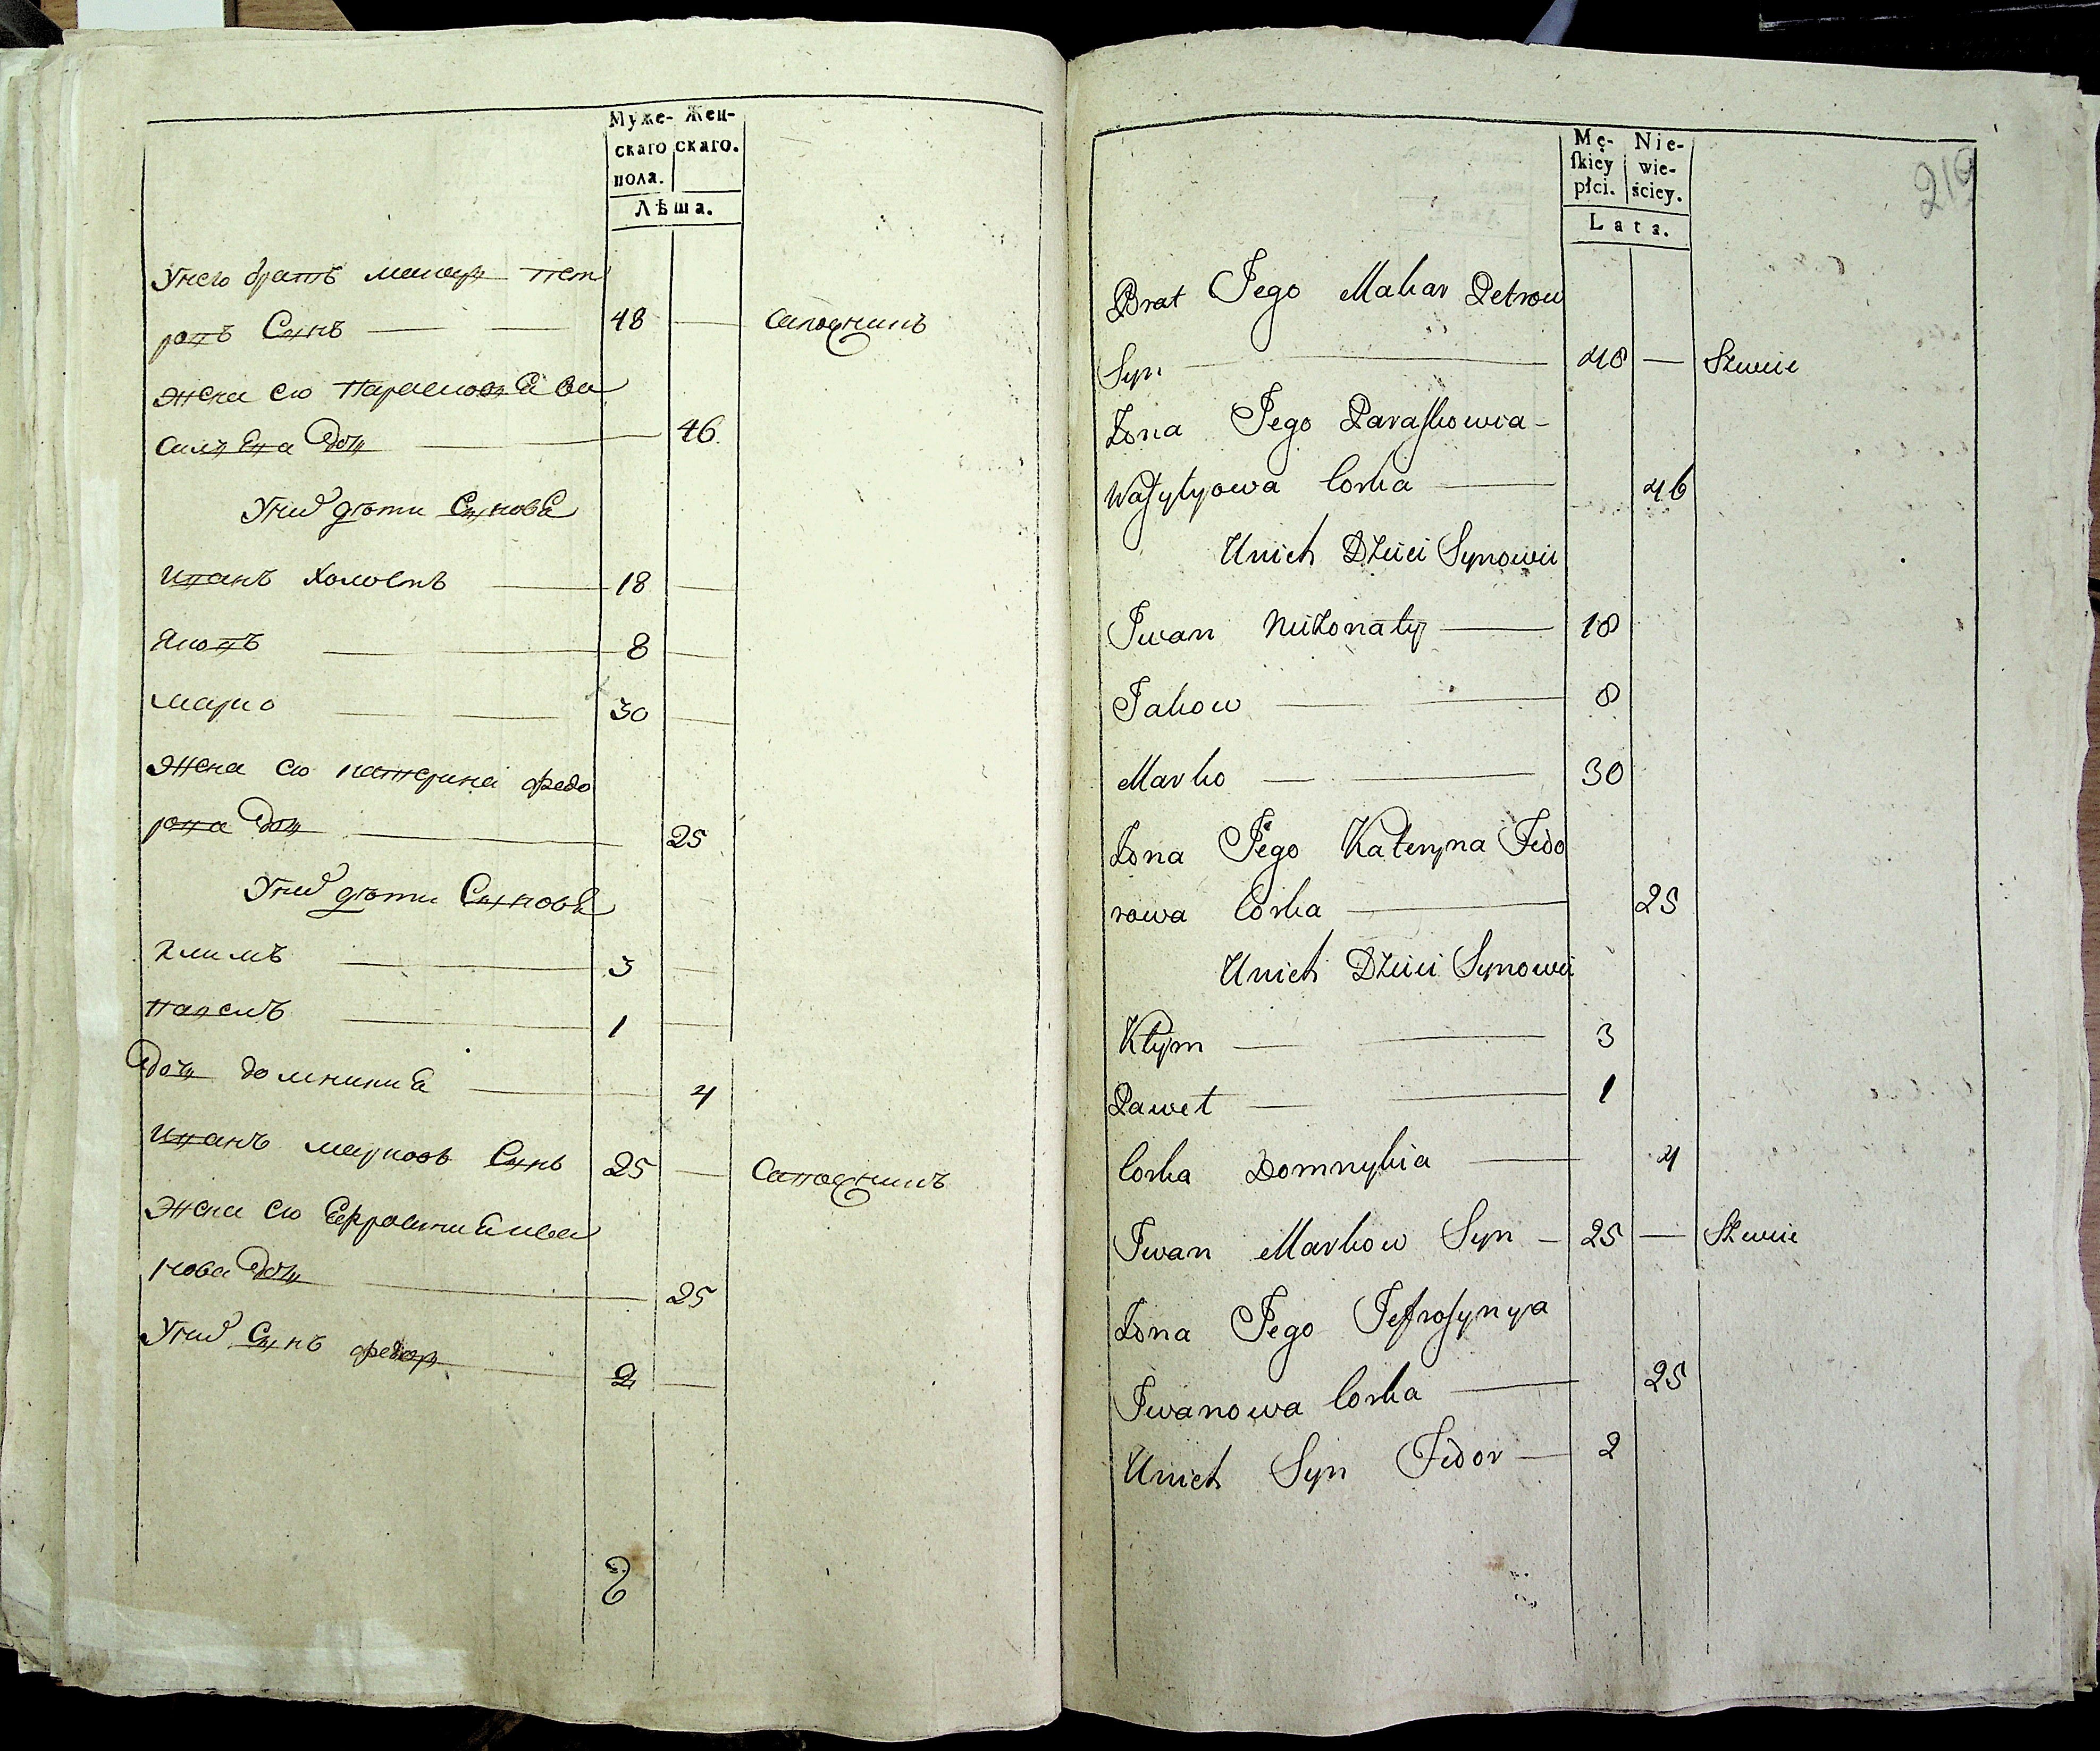 Муже- Жен-
скаго скаго.
пола.
Лѣта.
Унего братъ макар пет
ровъ Сынъ 48 сапожникъ
жена его парасковѣя ва
силь ева дочь 46
Уних дѣти Сыновя
иванъ холостъ 18
яковъ 8
марко 30
жена его катерина федо
рова дочь 25
Уних дѣти Сыновя
климъ 3
павелъ 1
дочь домникия 4
иванъ марковъ Сынъ 25 сапожникъ
жена его Ефросиния ива
нова дочь 25
Уних Сынъ федор 2
Mę- Nie-
skiey wie-
płci. ściey.
Lata.
219
Brat Jego Makar Petrow
Syn 48 Szewie
Żona Jego Paraskowia
Wasylyowa Corka 46
Unich Dzieci Synowie
Iwan Nieżonaty 18
Jakow 8
Marko 30
Żona Jego Kateryna Fedo
rowa Corka 25
Unich Dzieci Synowie
Kłym 3
Paweł 1
Corka Domnykia 4
Iwan Markow Syn 25 Szewie
Żona Jego Jefrosynya
Iwanowa Corka 25
Unich Syn Fedor 2